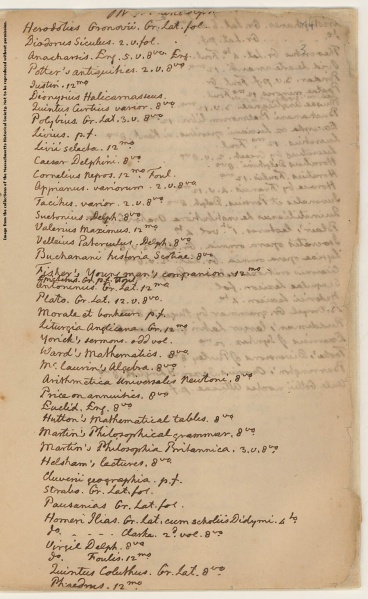 Herodotus Gronovii. Gr. Lat. fol.
Diodorus Siculus. 2.v. fol.
Anacharsis. Eng. 5.v. 8vo. Eng.
Potter's antiquities. 2.v. 8vo
Justin. 12mo
Dionysius Halicarnasseus.
Quintus Curtius varior. 8vo
Polybius. Gr. Lat. 3.v. 8vo
Livius. p.f.
Livii selecta. 12mo
Caesar Delphini. 8vo
Cornelius Nepos. 12mo Foul.
Appianus. variorum. 2.v. 8vo
Tacitus. varior. 2.v. 8vo
Suetonius. Delph. 8vo
Valerius Maximus. 12mo
Velleius Paterculus. Delph. 8vo
Buchanani historia Scotiae. 8vo
Fisher's Young man's companion. 12mo
Antoninus. Gr. Lat. 12mo
Plato. Gr. Lat. 12.v. 8vo.
Morale et bonheur p.f.
Liturgia Anglicana. Gr. 12mo
Yorick's sermons. odd vol.
Ward's Mathematics. 8vo
McLaurin's Algebra. 8vo
Arithmetica Universalis Newtoni. 8vo
Price on annuities. 8vo
Euclid. Eng. 8vo
Hutton's Mathematical tables. 8vo
Martin's Philosophical grammar. 8vo
Martin's Philosophia Britannica. 3.v. 8vo
Helsham's lectures. 8vo
Cluverii geographia. p.f.
Strabo. Gr. Lat. fol.
Pausanias Gr. Lat. fol.
Homeri Ilias. Gr. Lat. cum scholiis Didymi. 4to
do. - - - - Clarke. 2d. vol. 8vo
Virgil Delph. 8vo
do. Foulis. 12mo
Quintus Coluthus. Gr. Lat. 8vo
Phaedrus. 12mo
Image from the collections of the Massachusetts Historical Society. Not to be reproduced without permission.